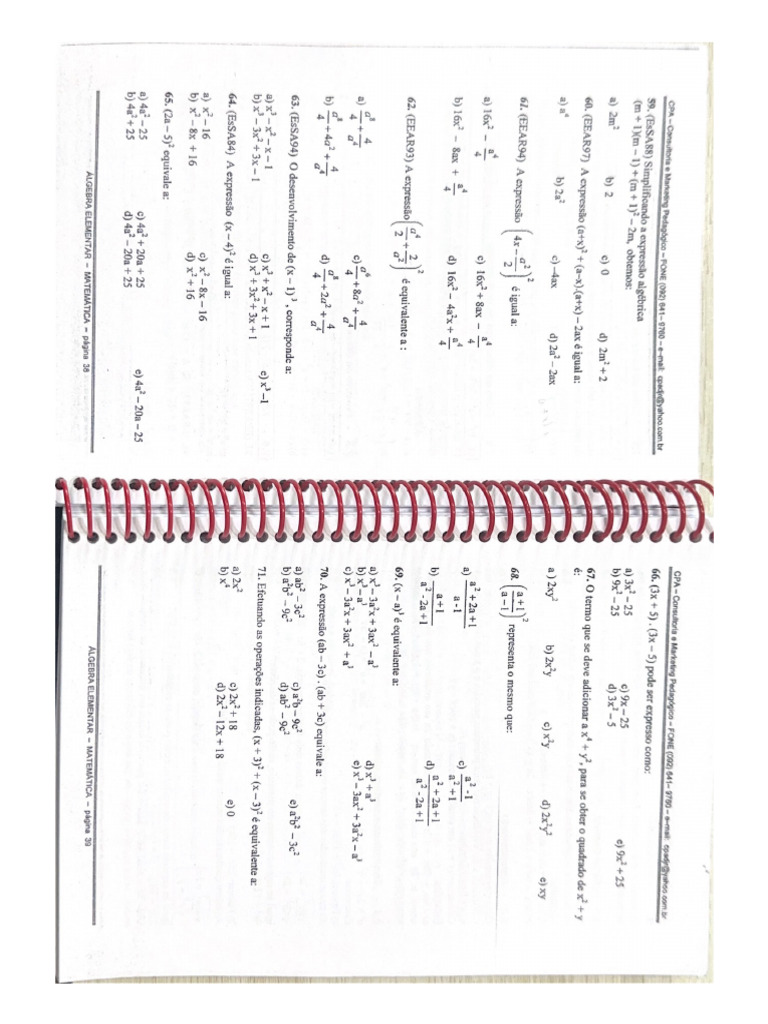 CPA – Consultoria e Marketing Pedagógico – FONE (092) 641– 9760 – e-mail: cpadp@yahoo.com.br
59. (EsSA88) Simplificando a expressão algébrica
(m + 1)(m – 1) + (m + 1)² – 2m, obtemos:
a) 2m² b) 2 c) 0 d) 2m² + 2
60. (EEAR97) A expressão (a+x)² + (a–x).(a+x) – 2ax é igual a:
a) a⁴ b) 2a² c) –4ax d) 2a² – 2ax
61. (EEAR94) A expressão (4x – a²/2)² é igual a:
a) 16x² – a⁴/4 c) 16x² + 8ax – a⁴/4
b) 16x² – 8ax + a⁴/4 d) 16x² – 4a²x + a⁴/4
62. (EEAR93) A expressão (a⁴/2 + 2/a²)² é equivalente a :
a) a⁸/4 + 4/a⁴ c) a⁶/4 + 8a² + 4/a⁴
b) a⁸/4 + 4a² + 4/a⁴ d) a⁸/4 + 2a² + 4/a⁴
63. (EsSA94) O desenvolvimento de (x – 1)³ , corresponde a:
a) x³ – x² – x – 1 c) x³ + x² – x + 1 e) x³ –1
b) x³ – 3x² + 3x – 1 d) x³ + 3x² + 3x + 1
64. (EsSA84) A expressão (x – 4)² é igual a:
a) x² – 16 c) x² – 8x – 16
b) x² – 8x + 16 d) x² + 16
65. (2a – 5)² equivale a:
a) 4a² – 25 c) 4a² + 20a + 25 e) 4a² – 20a – 25
b) 4a² + 25 d) 4a² – 20a + 25
ÁLGEBRA ELEMENTAR – MATEMÁTICA – página 38
CPA – Consultoria e Marketing Pedagógico – FONE (092) 641– 9760 – e-mail: cpadp@yahoo.com.br
66. (3x + 5) . (3x – 5) pode ser expresso como:
a) 3x² – 25 c) 9x – 25 e) 9x² + 25
b) 9x² – 25 d) 3x² – 5
67. O termo que se deve adicionar a x⁴ + y², para se obter o quadrado de x² + y
é:
a ) 2xy² b) 2x²y c) x²y d) 2x²y² e) xy
68. ((a+1)/(a–1))² representa o mesmo que:
a) (a² + 2a + 1)/(a - 1) c) (a² - 1)/(a² + 1)
b) (a + 1)/(a² - 2a + 1) d) (a² + 2a + 1)/(a² - 2a + 1)
69. (x – a)³ é equivalente a:
a) x³ – 3a²x + 3ax² – a³ d) x³ + a³
b) x³ – a³ e) x³ – 3ax² + 3a²x – a³
c) x³ – 3a²x + 3ax² + a³
70. A expressão (ab – 3c) . (ab + 3c) equivale a:
a) ab² – 3c² c) a²b – 9c² e) a²b² – 3c²
b) a²b² – 9c² d) ab² – 9c²
71. Efetuando as operações indicadas, (x + 3)² + (x – 3)² é equivalente a:
a) 2x² c) 2x² + 18 e) 0
b) x⁴ d) 2x² – 12x + 18
ÁLGEBRA ELEMENTAR – MATEMÁTICA – página 39